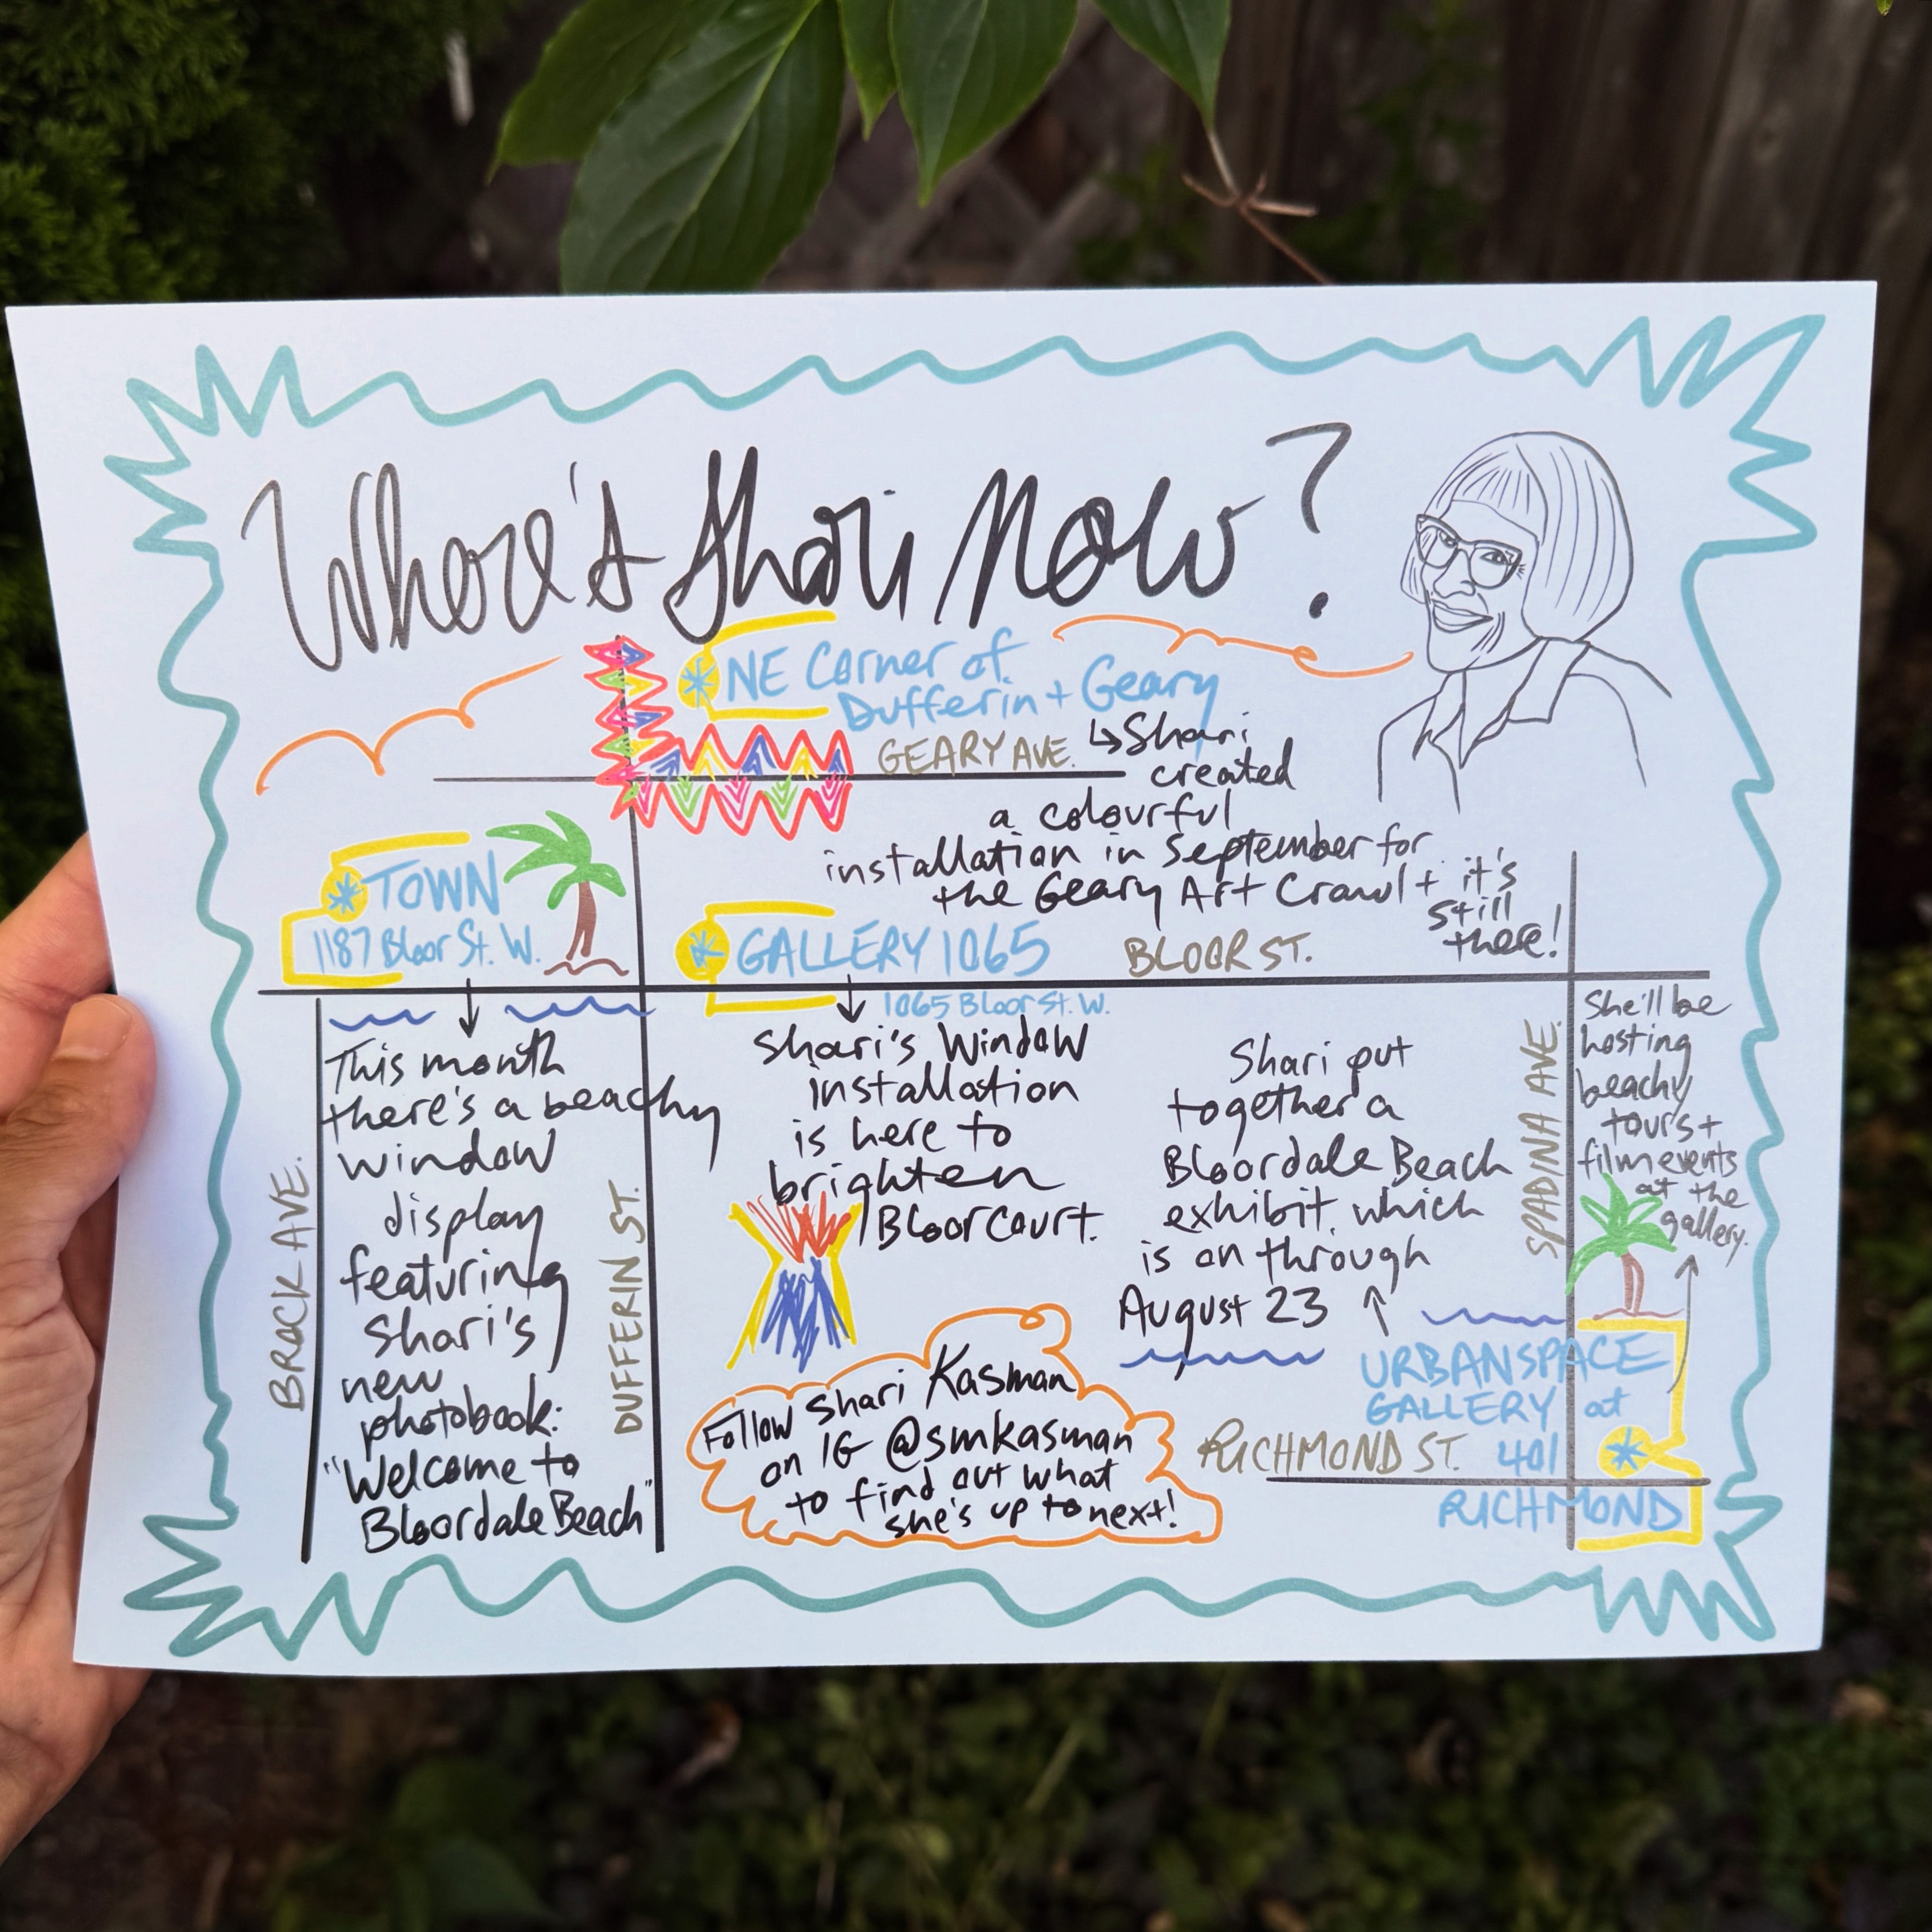 Where's Shari Now?
NE Corner of
Dufferin + Geary
GEARY AVE.
↳Shari
created
a colourful
installation in September for
the Geary Art Crawl + it's
still
there!
TOWN
1187 Bloor St. W.
GALLERY 1065
1065 Bloor St. W.
BLOOR ST.
BROCK AVE.
This month
there's a beachy
window
display
featuring
Shari's
new
photobook:
"Welcome to
Bloordale Beach"
DUFFERIN ST.
Shari's Window
installation
is here to
brighten
Bloorcourt.
Shari put
together a
Bloordale Beach
exhibit, which
is on through
August 23
SPADINA AVE.
She'll be
hosting
beachy
tours +
film events
at the
gallery.
URBANSPACE
GALLERY at
401
RICHMOND
RICHMOND ST.
Follow Shari Kasman
on IG @smkasman
to find out what
she's up to next!